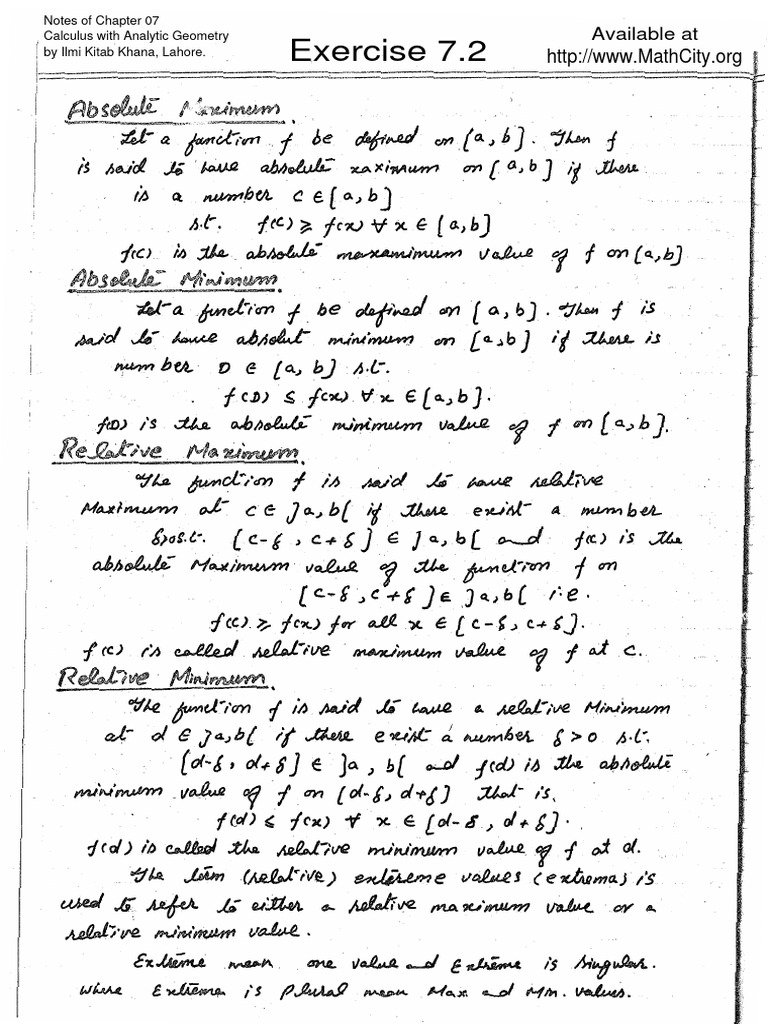 Notes of Chapter 07
Calculus with Analytic Geometry
by Ilmi Kitab Khana, Lahore.
Exercise 7.2
Available at
http://www.MathCity.org
Absolute Maximum
Let a function f be defined on [a, b]. Then f
is said to have absolute xaximum on [a, b] if there
is a number C ∈ [a, b]
s.t. f(c) ⩾ f(x) ∀ x ∈ [a, b]
f(c) is the absolute maxamimum value of f on [a, b]
Absolute Minimum
Let a function f be defined on [a, b]. Then f is
said to have absolut minimum on [a, b] if there is
number D ∈ [a, b] s.t.
f(D) ≤ f(x) ∀ x ∈ [a, b].
f(D) is the absolute minimum value of f on [a, b].
Relative Maximum
The function f is said to have relative
Maximum at c ∈ ]a, b[ if there exist a number
δ>0 s.t. [c-δ, c+δ] ∈ ]a, b[ and f(c) is the
absolute Maximum value of the function f on
[c-δ, c+δ] ∈ ]a, b[ i.e.
f(c) ⩾ f(x) for all x ∈ [c-δ, c+δ].
f(c) is called relative maximum value of f at c.
Relative Minimum
The function f is said to have a relative Minimum
at d ∈ ]a, b[ if there exist a number δ>0 s.t.
[d-δ, d+δ] ∈ ]a, b[ and f(d) is the absolute
minimum value of f on [d-δ, d+δ] that is,
f(d) ≤ f(x) ∀ x ∈ [d-δ, d+δ].
f(d) is called the relative minimum value of f at d.
The term (relative) extereme values (extrema) is
used to refer to either a relative maximum value or a
relative minimum value.
Extreme mean one value and Extreme is singular.
where Extreme is Plural mean Max and Mm. values.